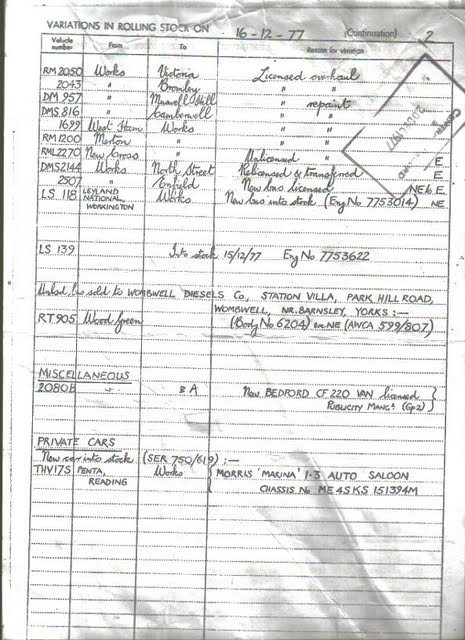 VARIATIONS IN ROLLING STOCK ON 16-12-77 (Continuation) 2
Vehicle number From To Reason for variation
RM 2050 Works Victoria Licensed overhaul
2043 " Bromley " "
DM 957 " Muswell Hill " repaint
DMS 816 " Camberwell " "
1699 West Ham Works " "
RM 1200 Merton " " "
RML 2270 New Cross " Unlicensed " E
DMS 2144 Works North Street Relicensed & transferred E
2507 " Enfield New bus licensed NE to E
LS 118 LEYLAND NATIONAL, WORKINGTON Works New bus into stock (Eng No 7753014) NE
LS 139 Into stock 15/12/77 Eng No 7753622
Unlicd. bus sold to WOMBWELL DIESELS Co, STATION VILLA, PARK HILL ROAD,
WOMBWELL, NR. BARNSLEY, YORKS :—
RT 905 Wood Green (Body No 6204) ex NE (AWCA 599/807)
MISCELLANEOUS
2080B BA New BEDFORD CF 220 VAN licensed
PUBLICITY MANGR (Gp2)
PRIVATE CARS
New car into stock (SER 750/619) :—
THV 17S PENTA, READING Works MORRIS 'MARINA' 1-3 AUTO SALOON
CHASSIS No ME4SKS 151394M